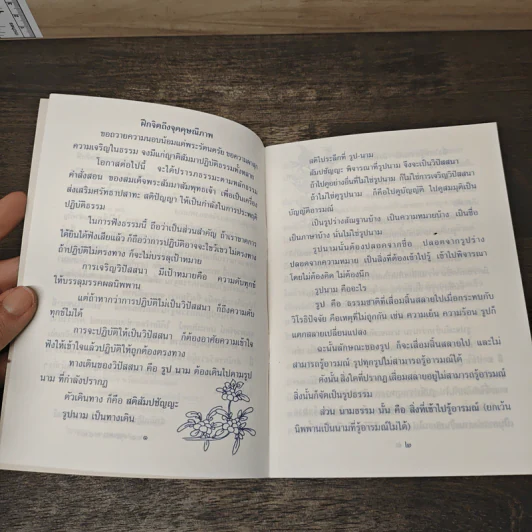 ฝึกจิตถึงจุดดุษณีภาพ
ขอถวายความนอบน้อมแด่พระรัตนตรัย ขอความผาสุก
ความเจริญในธรรม จงมีแก่ญาติสัมมาปฏิบัติธรรมทั้งหลาย
โอกาสต่อไปนี้ จะได้ปรารภธรรมะตามหลักธรรม
คำสั่งสอน ของสมเด็จพระสัมมาสัมพุทธเจ้า เพื่อเป็นเครื่อง
ส่งเสริมศรัทธาปสาทะ สติปัญญา ให้เป็นกำลังในการประพฤติ
ปฏิบัติธรรม
ในการฟังธรรมนี้ ถือว่าเป็นส่วนสำคัญ ถ้าเราขาดการ
ได้ยินได้ฟังเสียแล้ว ก็ถือว่าการปฏิบัติอาจจะไขว้เขว ไม่ตรงทาง
ถ้าปฏิบัติไม่ตรงทาง ก็จะไม่บรรลุเป้าหมาย
การเจริญวิปัสสนา มีเป้าหมายคือ ความดับทุกข์
ให้บรรลุมรรคผลนิพพาน
แต่ถ้าหากว่าการปฏิบัติไม่เป็นวิปัสสนา ก็ถึงความดับ
ทุกข์ไม่ได้
การจะปฏิบัติให้เป็นวิปัสสนา ก็ต้องอาศัยความเข้าใจ
ฟังให้เข้าใจแล้วปฏิบัติให้ถูกต้องตรงทาง
ทางเดินของวิปัสสนา คือ รูป นาม ต้องเดินไปตามรูป
นาม ที่กำลังปรากฏ
ตัวเดินทาง ก็คือ สติสัมปชัญญะ
รูปนาม เป็นทางเดิน
๑
สติไประลึกที่ รูป-นาม
สัมปชัญญะ พิจารณาที่รูปนาม จึงจะเป็นวิปัสสนา
ถ้าไปดูอย่างอื่นที่ไม่ใช่รูปนาม ก็ไม่ใช่การเจริญวิปัสสนา
ถ้าไม่ใช่รูปนาม ก็คือไปดูบัญญัติ ไปดูสมมุติเป็น
บัญญัติอารมณ์
เป็นรูปร่างสัณฐานบ้าง เป็นความหมายบ้าง เป็นชื่อ
เป็นภาษาบ้าง นั่นไม่ใช่รูปนาม
รูปนามนั้นต้องปลอดจากชื่อ ปลอดจากรูปร่าง
ปลอดจากความหมาย เป็นสิ่งที่ต้องเข้าไปรู้ เข้าไปพิจารณา
โดยไม่ต้องคิด ไม่ต้องนึก
รูปนาม คืออะไร
รูป คือ ธรรมชาติที่เสื่อมสิ้นสลายไปเมื่อกระทบกับ
วิโรธิปัจจัย คือเหตุที่ไม่ถูกกัน เช่น ความเย็น ความร้อน รูปก็
แตกสลายเปลี่ยนแปลง
ฉะนั้นลักษณะของรูป ก็จะเสื่อมสิ้นสลายไป และไม่
สามารถรู้อารมณ์ รูปทุกรูปไม่สามารถรู้อารมณ์ได้
ดังนั้น สิ่งใดที่ปรากฏ เสื่อมสลายอยู่ไม่สามารถรู้อารมณ์
สิ่งนั้นก็จัดเป็นรูปธรรม
ส่วน นามธรรม นั้น คือ สิ่งที่เข้าไปรู้อารมณ์ (ยกเว้น
นิพพานเป็นนามที่รู้อารมณ์ไม่ได้)
๒